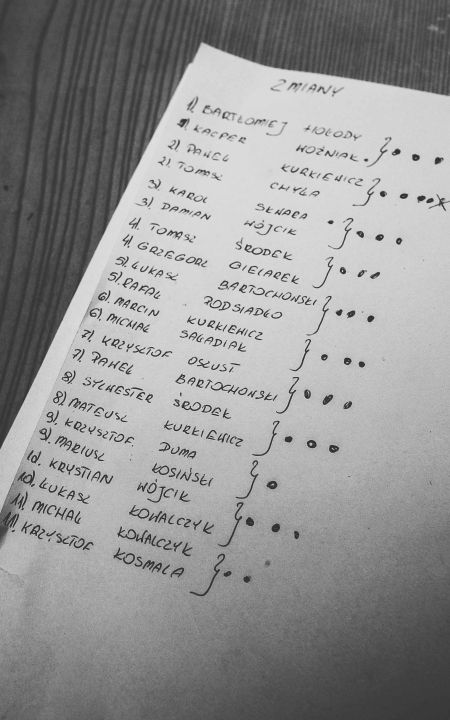 ZMIANY
1). BARTŁOMIEJ HOŁODY
1). KACPER WOŹNIAK
2). PAWEŁ KURKIEWICZ
2). TOMASZ CHYŁA
3). KAROL SKWARA
3). DAMIAN WÓJCIK
4). TOMASZ ŚRODEK
4). GRZEGORZ GIELAREK
5). ŁUKASZ BARTOCHOWSKI
5). RAFAŁ PODSIADŁO
6). MARCIN KURKIEWICZ
6). MICHAŁ SAGADIAK
7). KRZYSZTOF OSŁUST
7). PAWEŁ BARTOCHOWSKI
8). SYLWESTER ŚRODEK
8). MATEUSZ KURKIEWICZ
9). KRZYSZTOF DUMA
9). MARIUSZ KOSIŃSKI
10). KRYSTIAN WÓJCIK
10). ŁUKASZ KOWALCZYK
11). MICHAŁ KOWALCZYK
11). KRZYSZTOF KOSMALA